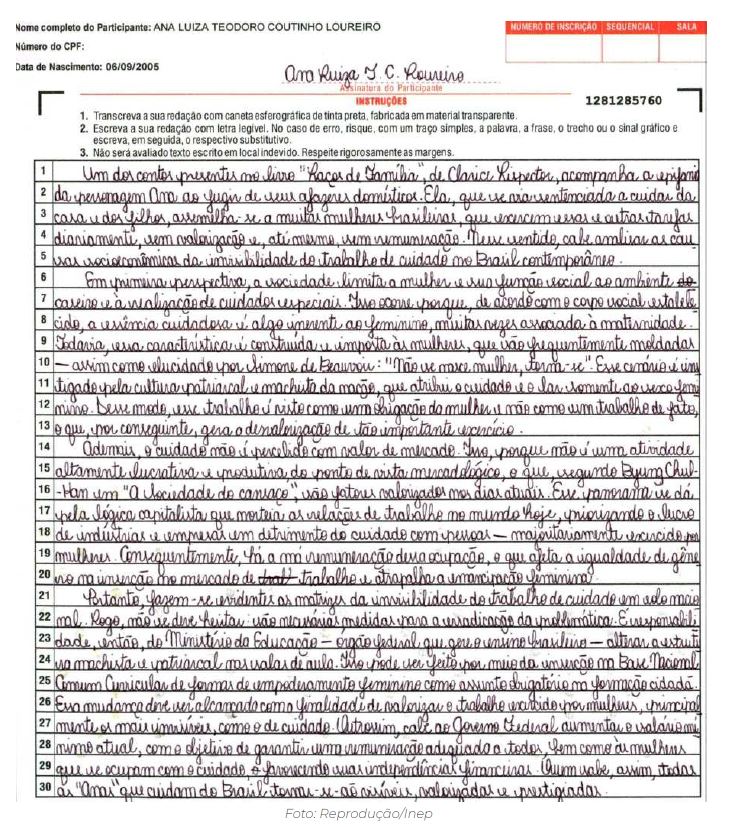 Nome completo do Participante: ANA LUIZA TEODORO COUTINHO LOUREIRO
NÚMERO DE INSCRIÇÃO SEQUENCIAL SALA
Número do CPF:
Data de Nascimento: 06/09/2005
Ana Luiza T. C. Loureiro
Assinatura do Participante
INSTRUÇÕES
1281285760
1. Transcreva a sua redação com caneta esferográfica de tinta preta, fabricada em material transparente.
2. Escreva a sua redação com letra legível. No caso de erro, risque, com um traço simples, a palavra, a frase, o trecho ou o sinal gráfico e
escreva, em seguida, o respectivo substitutivo.
3. Não será avaliado texto escrito em local indevido. Respeite rigorosamente as margens.
1 Um dos contos presentes no livro "Laços de Família", de Clarice Lispector, acompanha a epifania
2 da personagem Ana ao fugir de seus afazeres domésticos. Ela, que se via sentenciada a cuidar da
3 casa e dos filhos, assemelha-se a muitas mulheres brasileiras, que exercem essas e outras tarefas
4 diariamente, sem valorização e, até mesmo, sem remuneração. Nesse sentido, cabe analisar as cau
5 sas socioeconômicas da invisibilidade do trabalho de cuidado no Brasil contemporâneo.
6 Em primeira perspectiva, a sociedade limita a mulher e sua função social ao ambiente do
7 caseiro e à realização de cuidados especiais. Isso ocorre porque, de acordo com o corpo social estabele
8 cido, a essência cuidadora é algo inerente ao feminino, muitas vezes associada à maternidade.
9 Todavia, essa característica é construída e imposta às mulheres, que são frequentemente moldadas
10 — assim como elucidado por Simone de Beauvoir: "Não se nasce mulher, torna-se". Esse cenário é ins
11 tigado pela cultura patriarcal e machista da nação, que atribui o cuidado e o lar somente ao sexo femi
12 nino. Desse modo, esse trabalho é visto como uma obrigação da mulher e não como um trabalho de fato,
13 o que, por conseguinte, gera a desvalorização de tão importante exercício.
14 Ademais, o cuidado não é percebido com valor de mercado. Isso, porque não é uma atividade
15 altamente lucrativa e produtiva do ponto de vista mercadológico, o que, segundo Byung Chul-
16 -Han em "A Sociedade do cansaço", são fatores valorizados nos dias atuais. Esse panorama se dá
17 pela lógica capitalista que norteia as relações de trabalho no mundo hoje, priorizando o lucro
18 de indústrias e empresas em detrimento do cuidado com pessoas — majoritariamente exercido por
19 mulheres. Consequentemente, há a má remuneração dessa ocupação, o que afeta a igualdade de gêne
20 ro na inserção no mercado de trab trabalho e atrapalha a emancipação feminina.
21 Portanto, fazem-se evidentes as matrizes da invisibilidade do trabalho de cuidado em solo nacio
22 nal. Logo, não se deve hesitar: são necessárias medidas para a erradicação da problemática. É responsabili
23 dade, então, do Ministério da Educação — órgão federal que gere o ensino brasileiro — alterar a estrutu
24 ra machista e patriarcal nas salas de aula. Isso pode ser feito por meio da inserção na Base Nacional
25 Comum Curricular de formas de empoderamento feminino como assunto obrigatório na formação cidadã.
26 Essa mudança deve ser alcançada com a finalidade de valorizar o trabalho exercido por mulheres, principal
27 mente os mais invisíveis, como o de cuidado. Outrossim, cabe ao Governo Federal aumentar o salário mí
28 nimo atual, com o objetivo de garantir uma remuneração adequada a todos, bem como às mulheres
29 que se ocupam com o cuidado, favorecendo suas independências financeiras. Quem sabe, assim, todas
30 as "Anas" que cuidam do Brasil tornar-se-ão visíveis, valorizadas e prestigiadas.
Foto: Reprodução/Inep